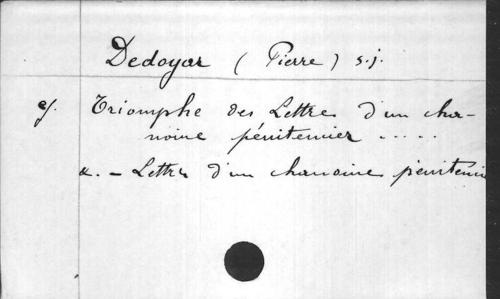 Dedoyar (Pierre) s.j.
cf. Triomphe des Lettres d'un cha-
noine pénitencier .....
a. - Lettres d'un chanoine péniten